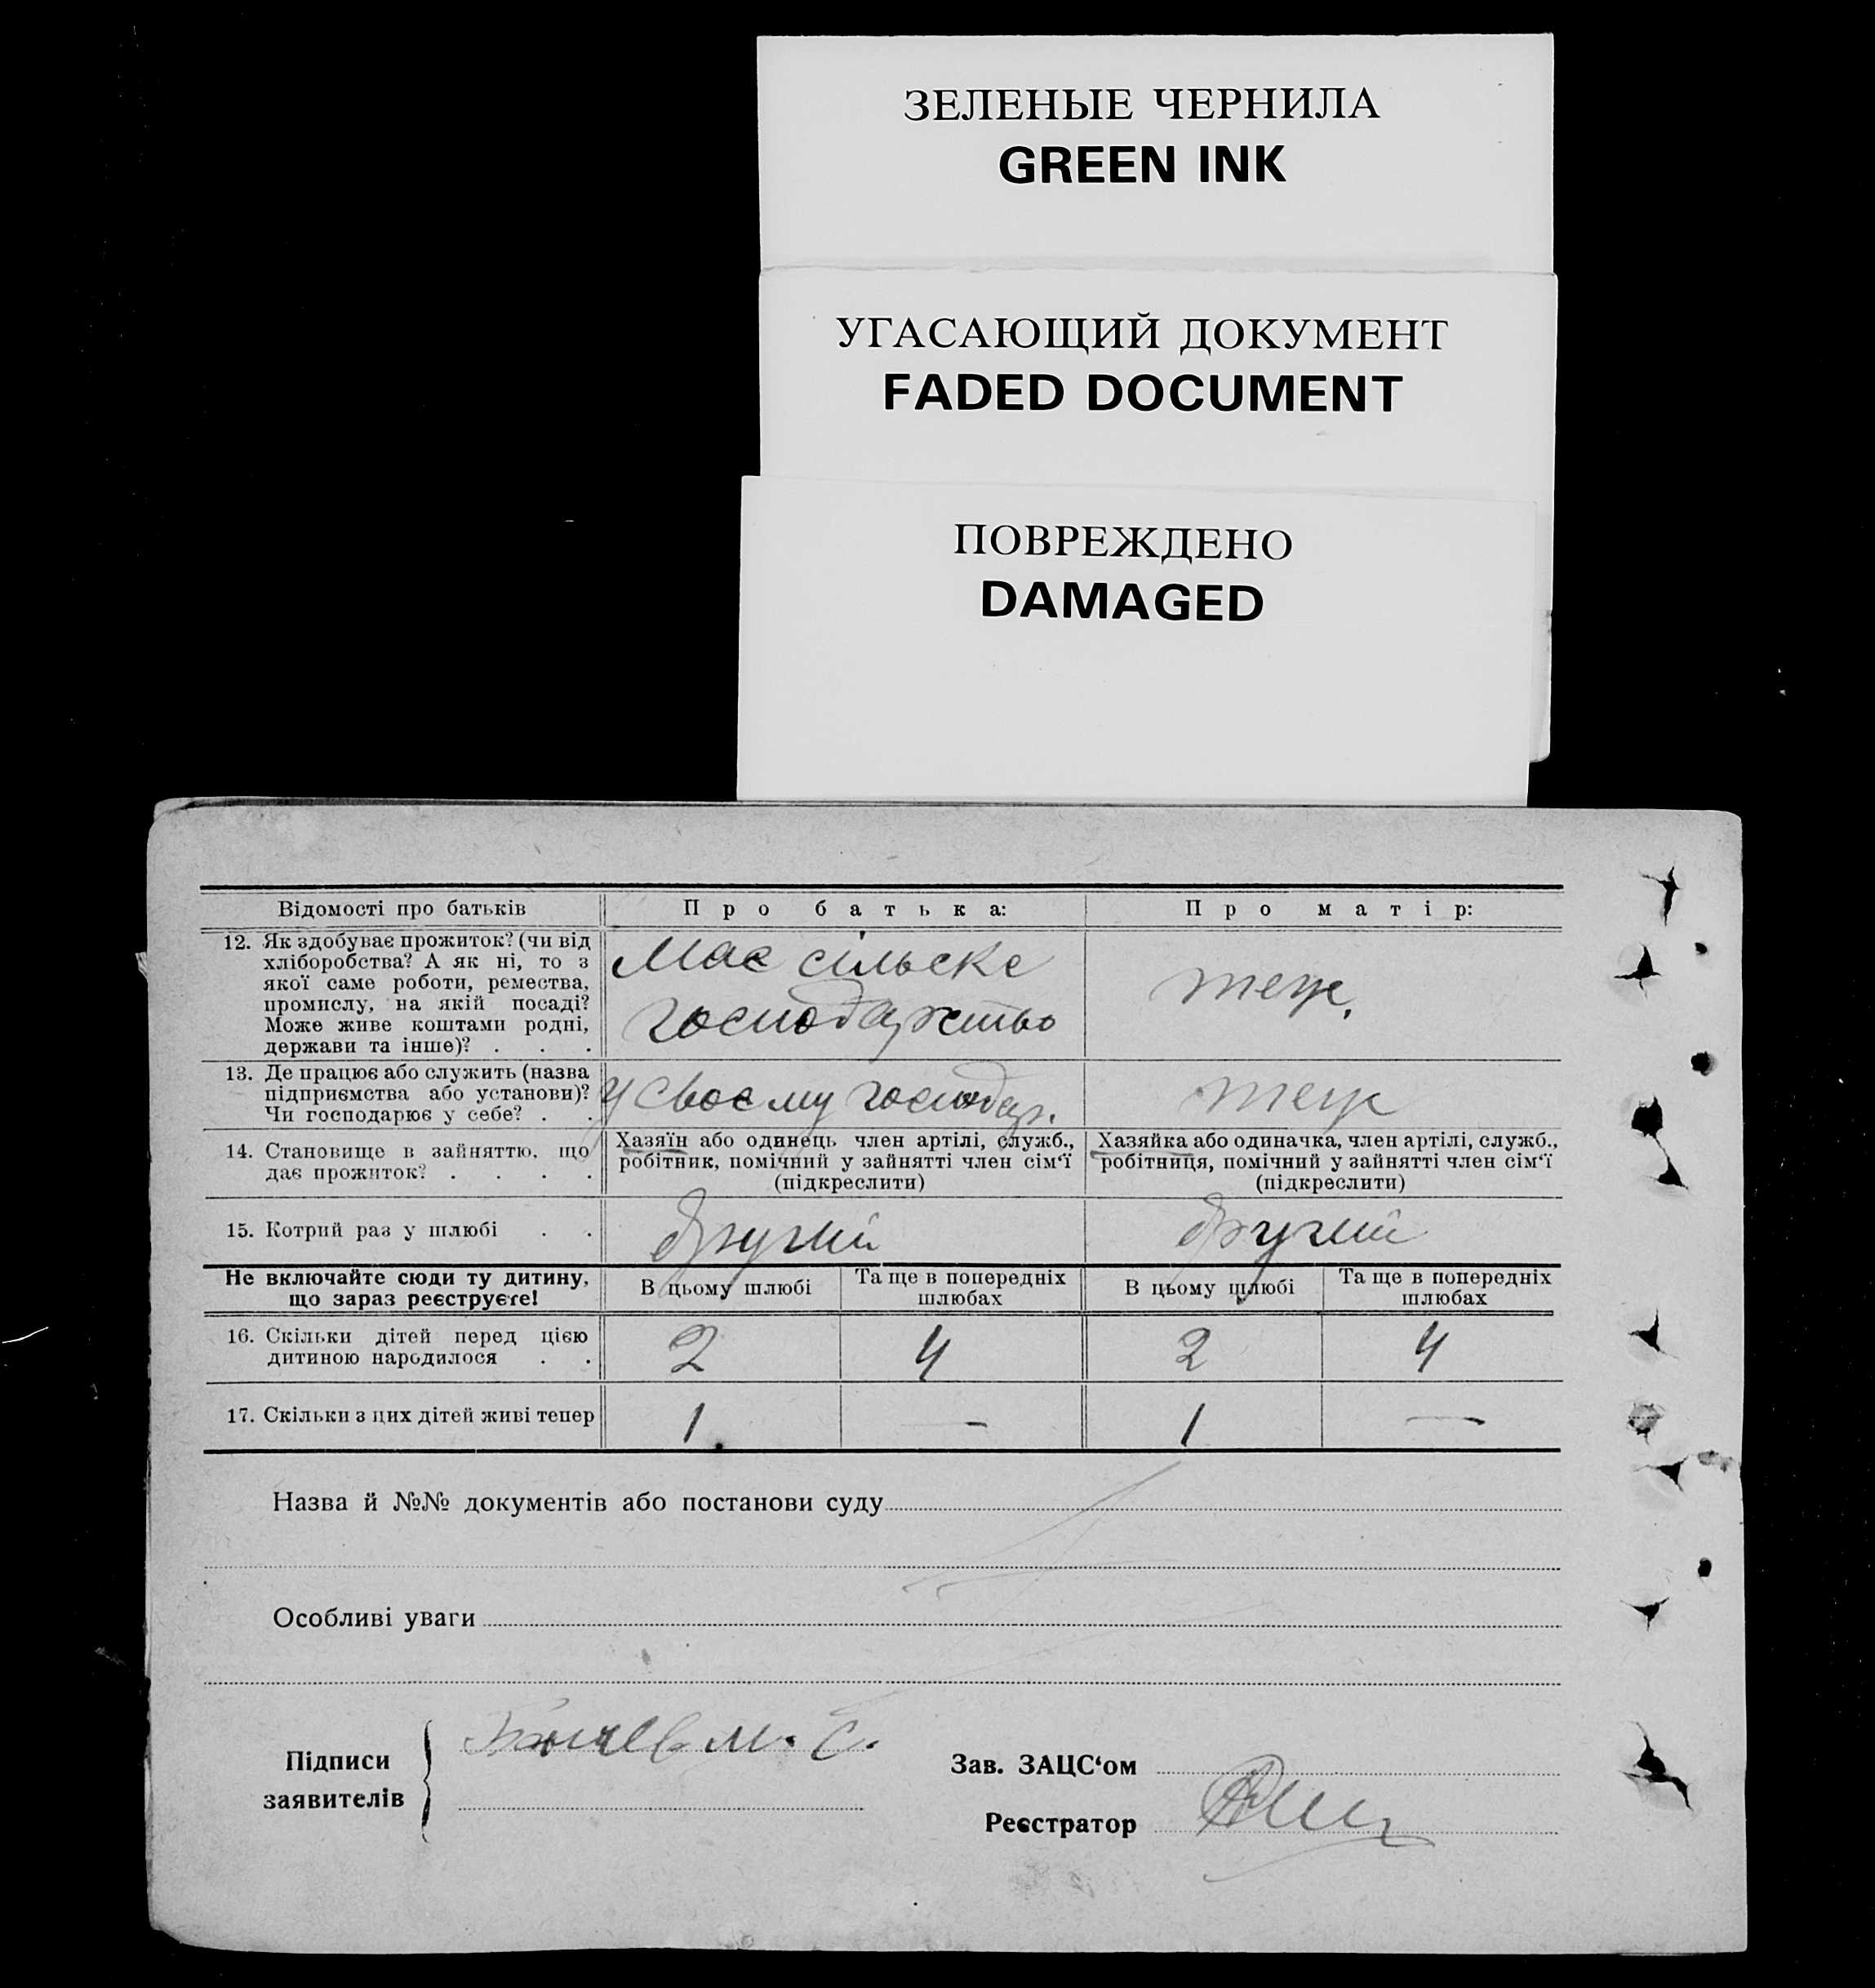 ЗЕЛЕНЫЕ ЧЕРНИЛА
GREEN INK
УГАСАЮЩИЙ ДОКУМЕНТ
FADED DOCUMENT
ПОВРЕЖДЕНО
DAMAGED
Відомості про батьків
Про батька:
Про матір:
12. Як здобуває прожиток? (чи від
хліборобства? А як ні, то з
якої саме роботи, ремества,
промислу, на якій посаді?
Може живе коштами родні,
держави та інше)? . . .
Має сільске
господарство
теж.
13. Де працює або служить (назва
підприємства або установи)?
Чи господарює у себе? . .
У своєму господар.
теж
14. Становище в зайняттю, що
дає прожиток? . . . .
Хазяїн або одинець член артілі, служб.,
робітник, помічний у зайнятті член сім‘ї
(підкреслити)
Хазяйка або одиначка, член артілі, служб.,
робітниця, помічний у зайнятті член сім‘ї
(підкреслити)
15. Котрий раз у шлюбі . .
другий
другий
Не включайте сюди ту дитину,
що зараз реєструєте!
В цьому шлюбі
Та ще в попередніх
шлюбах
В цьому шлюбі
Та ще в попередніх
шлюбах
16. Скільки дітей перед цією
дитиною народилося . .
2
4
2
4
17. Скільки з цих дітей живі тепер
1
—
1
—
Назва й №№ документів або постанови суду
Особливі уваги
Підписи
заявителів
м. С.
Зав. ЗАЦС‘ом
Реєстратор